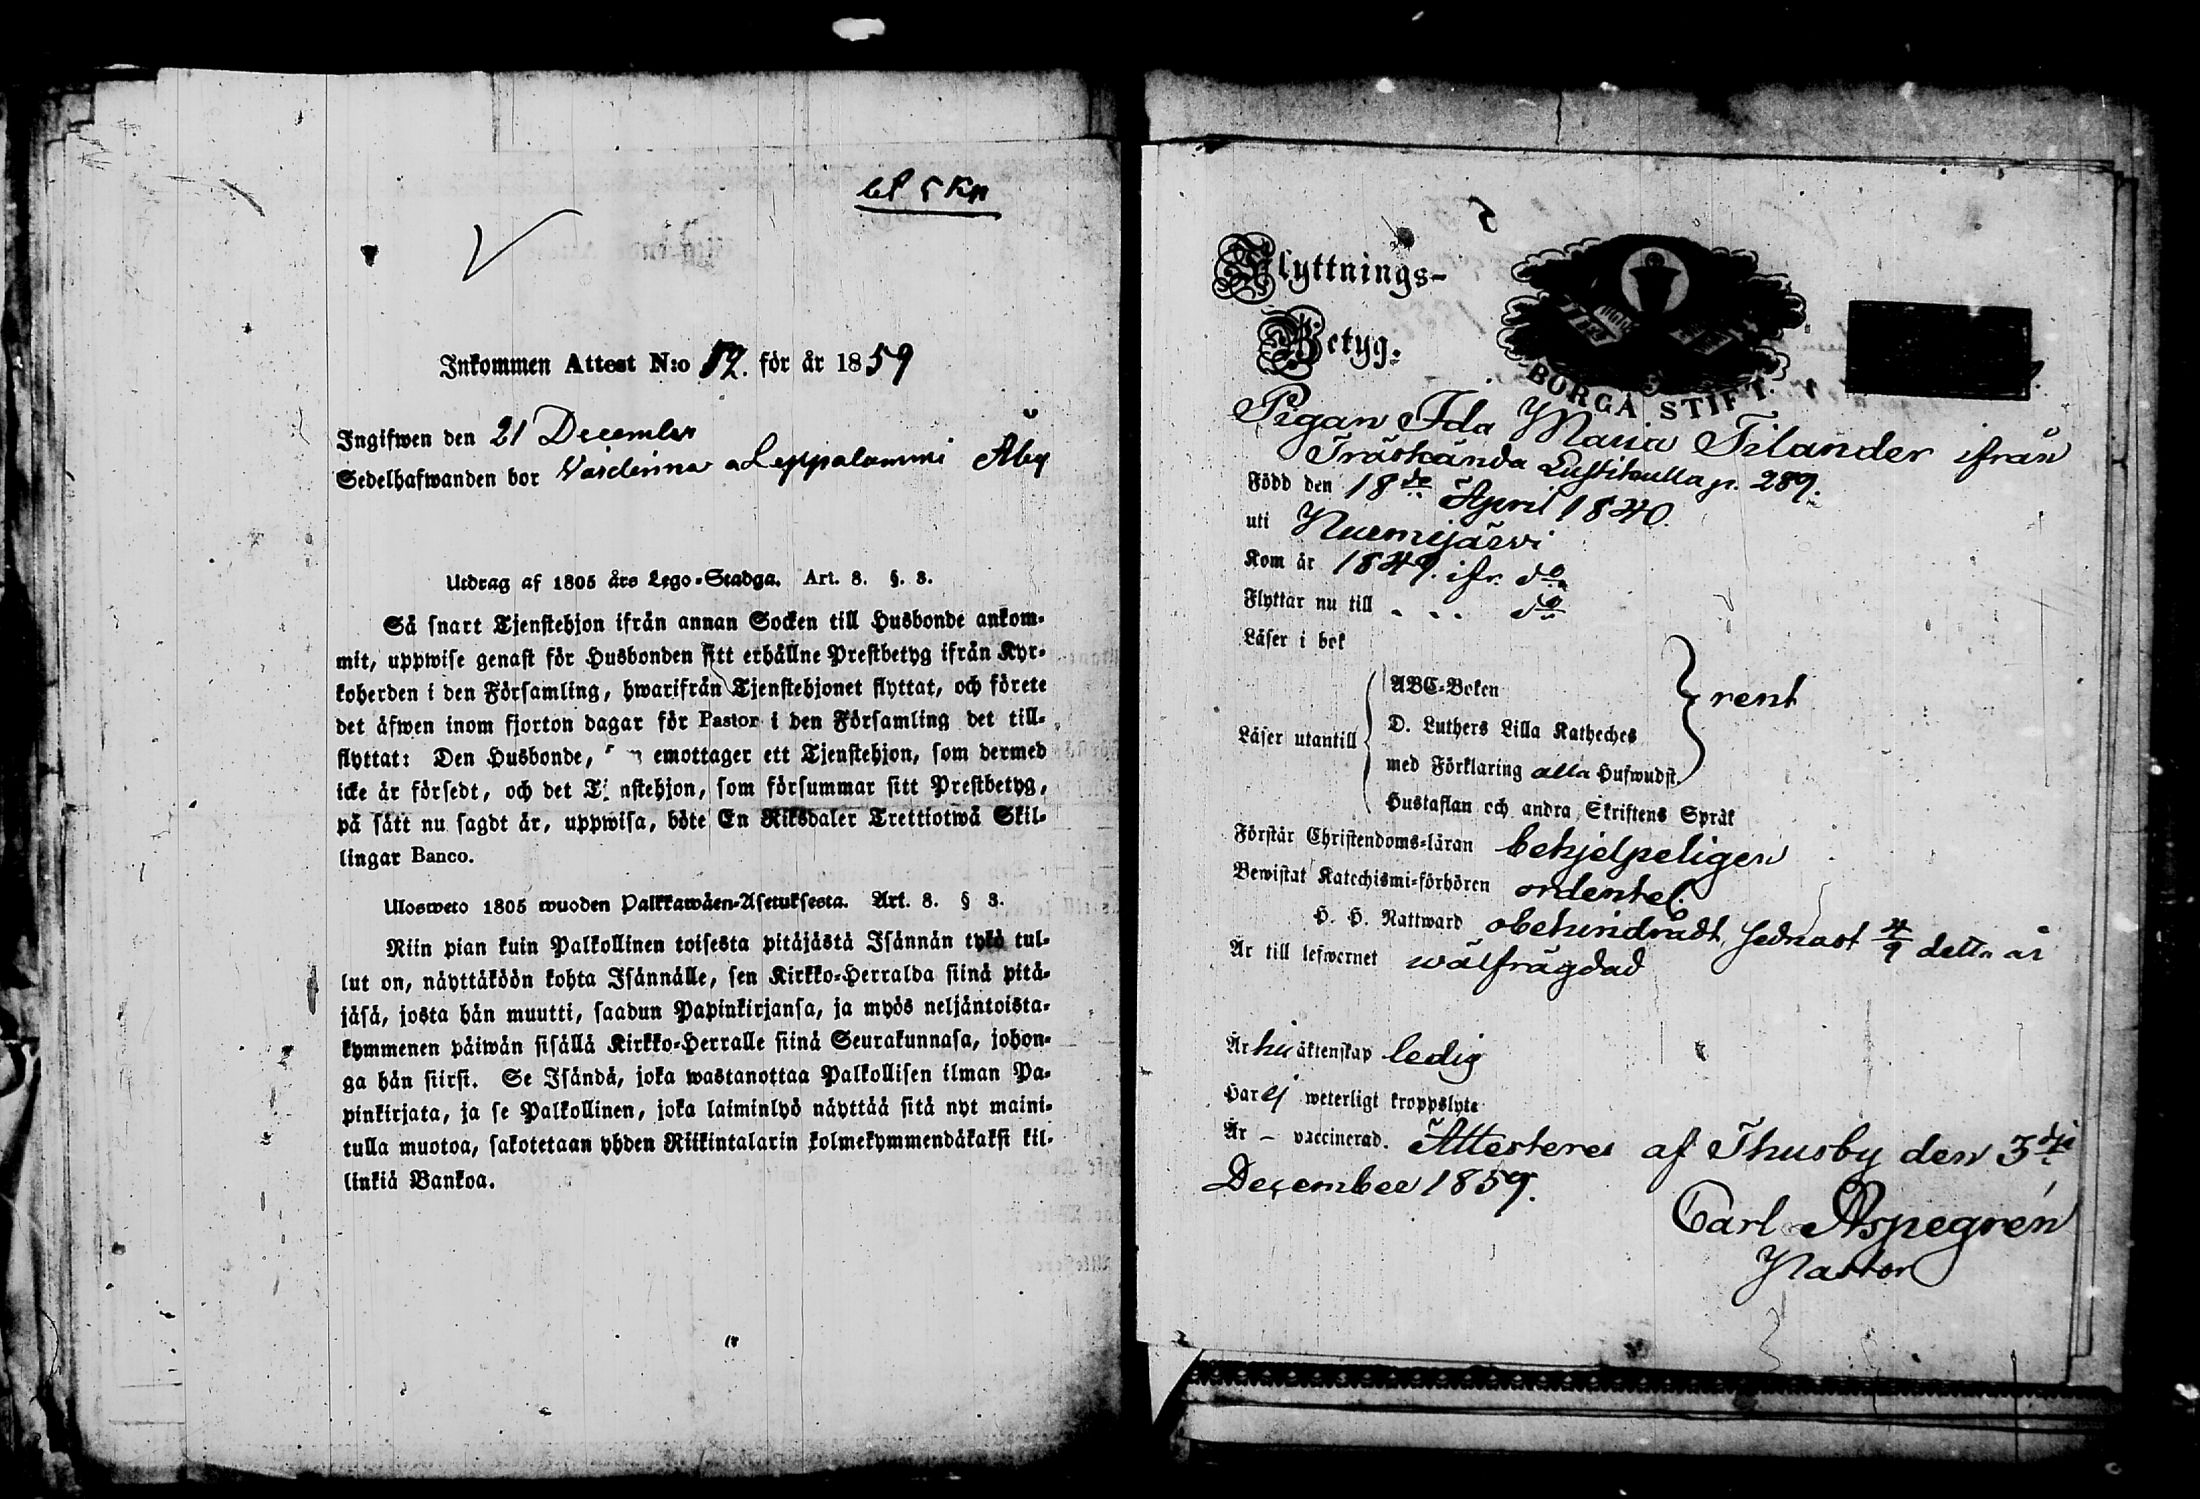 bf 5 Kp
Inkommen Attest N:o 52. för år 1859
Ingifwen den 21 December
Sedelhafwanden bor Leppälammi Åby
Utdrag af 1805 års Lego-Stadga. Art. 8. §. 3.
Så snart Tjenstehjon ifrån annan Socken till Husbonde ankom-
mit, uppwise genast för Husbonden sitt erhållne Prestbetyg ifrån Kyr-
koherden i den Församling, hwarifrån Tjenstehjonet flyttat, och förete
det äfwen inom fjorton dagar för Pastor i den Församling det till-
flyttat: Den Husbonde, emottager ett Tjenstehjon, som dermed
icke är försedt, och det Tj nstehjon, som försummar sitt Prestbetyg,
på sätt nu sagdt är, uppwisa, böte En Riksdaler Trettiotwå Skil-
lingar Banco.
Ulosweto 1805 wuoden Palkkawäen-Asetuksesta. Art. 8. § 3.
Niin pian kuin Palkollinen toisesta pitäjästä Isännän tykö tul-
lut on, näyttäköön kohta Isännälle, sen Kirkko-Herralda siinä pitä-
jäsä, josta hän muutti, saadun Papinkirjansa, ja myös neljäntoista-
kymmenen päiwän sisällä Kirkko-Herralle siinä Seurakunnasa, johon-
ga hän siirsi. Se Isändä, joka wastanottaa Palkollisen ilman Pa-
pinkirjata, ja se Palkollinen, joka laiminlyö näyttää sitä nyt maini-
tulla muotoa, sakotetaan yhden Riikintalarin kolmekymmendäkaksi kil-
linkiä Bankoa.
5
Flyttnings-
Betyg.
BORGÅ STIFT.
Pigan Ida Maria Filander ifrån
Träskända Lustikulla p. 289.
Född den 18de April 1840.
uti Nurmijärvi
Kom år 1849. ifr. do
Flyttar nu till - - - do
Läser i bok
Läser utantill
ABC-Boken
D. Luthers Lilla Katheches
med Förklaring alla Hufwudst.
rent
Hustaflan och andra Skriftens Språk
Förstår Christendoms-läran behjelpeligen
Bewistat Katechismi-förhören ordentel.
H. H. Nattward obehindradt, sednast 4/9 detta år
Är till lefwernet wälfrägdad
Är hu äktenskap ledig
Har ej weterligt kroppslyte
Är – vaccinerad. Attesteres af Thusby den 3dje
December 1859.
Carl Aspegrén
Pastor